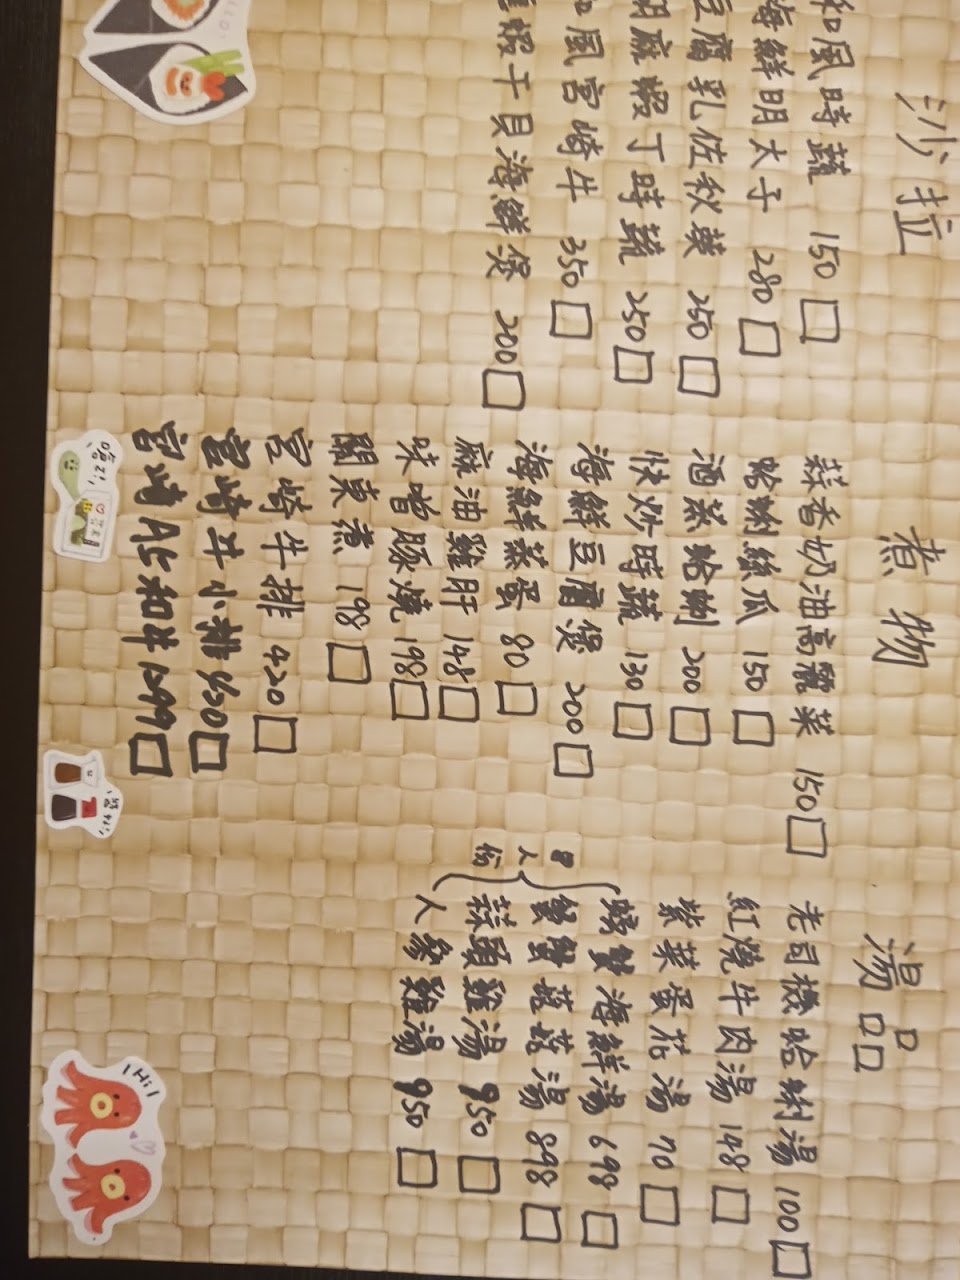 沙拉
和風時蔬 150
海鮮明太子 280
豆腐乳佐秋葵 250
胡麻蝦丁時蔬 250
和風宮崎牛 350
蝦干貝海鮮煲 200
煮物
蒜香奶油高麗菜 150
蛤蜊絲瓜 150
酒蒸蛤蜊 200
快炒時蔬 130
海鮮豆腐煲 200
海鮮蒸蛋 80
麻油雞肝 148
味噌豚燒 198
關東煮 198
宮崎牛排 420
宮崎牛小排 450
宮崎A5和牛 1299
湯品
老司機蛤蜊湯 100
紅燒牛肉湯 148
紫菜蛋花湯 70
螃蟹海鮮湯 698
螃蟹菇菇湯 898
蒜頭雞湯 950
人參雞湯 950
人份
Hi!